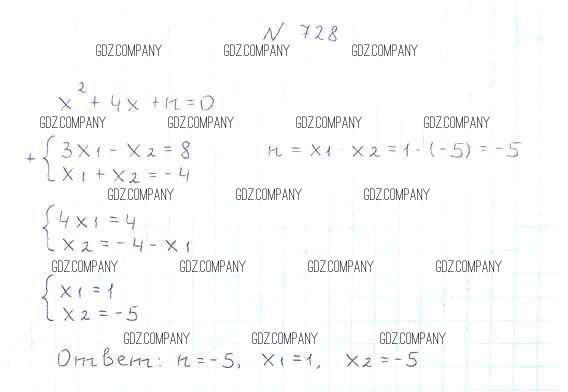 N 728
GDZ.COMPANY GDZ.COMPANY GDZ.COMPANY
x² + 4x + n = 0
GDZ.COMPANY GDZ.COMPANY GDZ.COMPANY GDZ.COMPANY
+ { 3x1 - x2 = 8 n = x1 · x2 = 1 · (-5) = -5
x1 + x2 = -4
GDZ.COMPANY GDZ.COMPANY GDZ.COMPANY
{ 4x1 = 4
x2 = -4 - x1
GDZ.COMPANY GDZ.COMPANY GDZ.COMPANY GDZ.COMPANY
{ x1 = 1
x2 = -5
GDZ.COMPANY GDZ.COMPANY GDZ.COMPANY
Ответ: n = -5, x1 = 1, x2 = -5